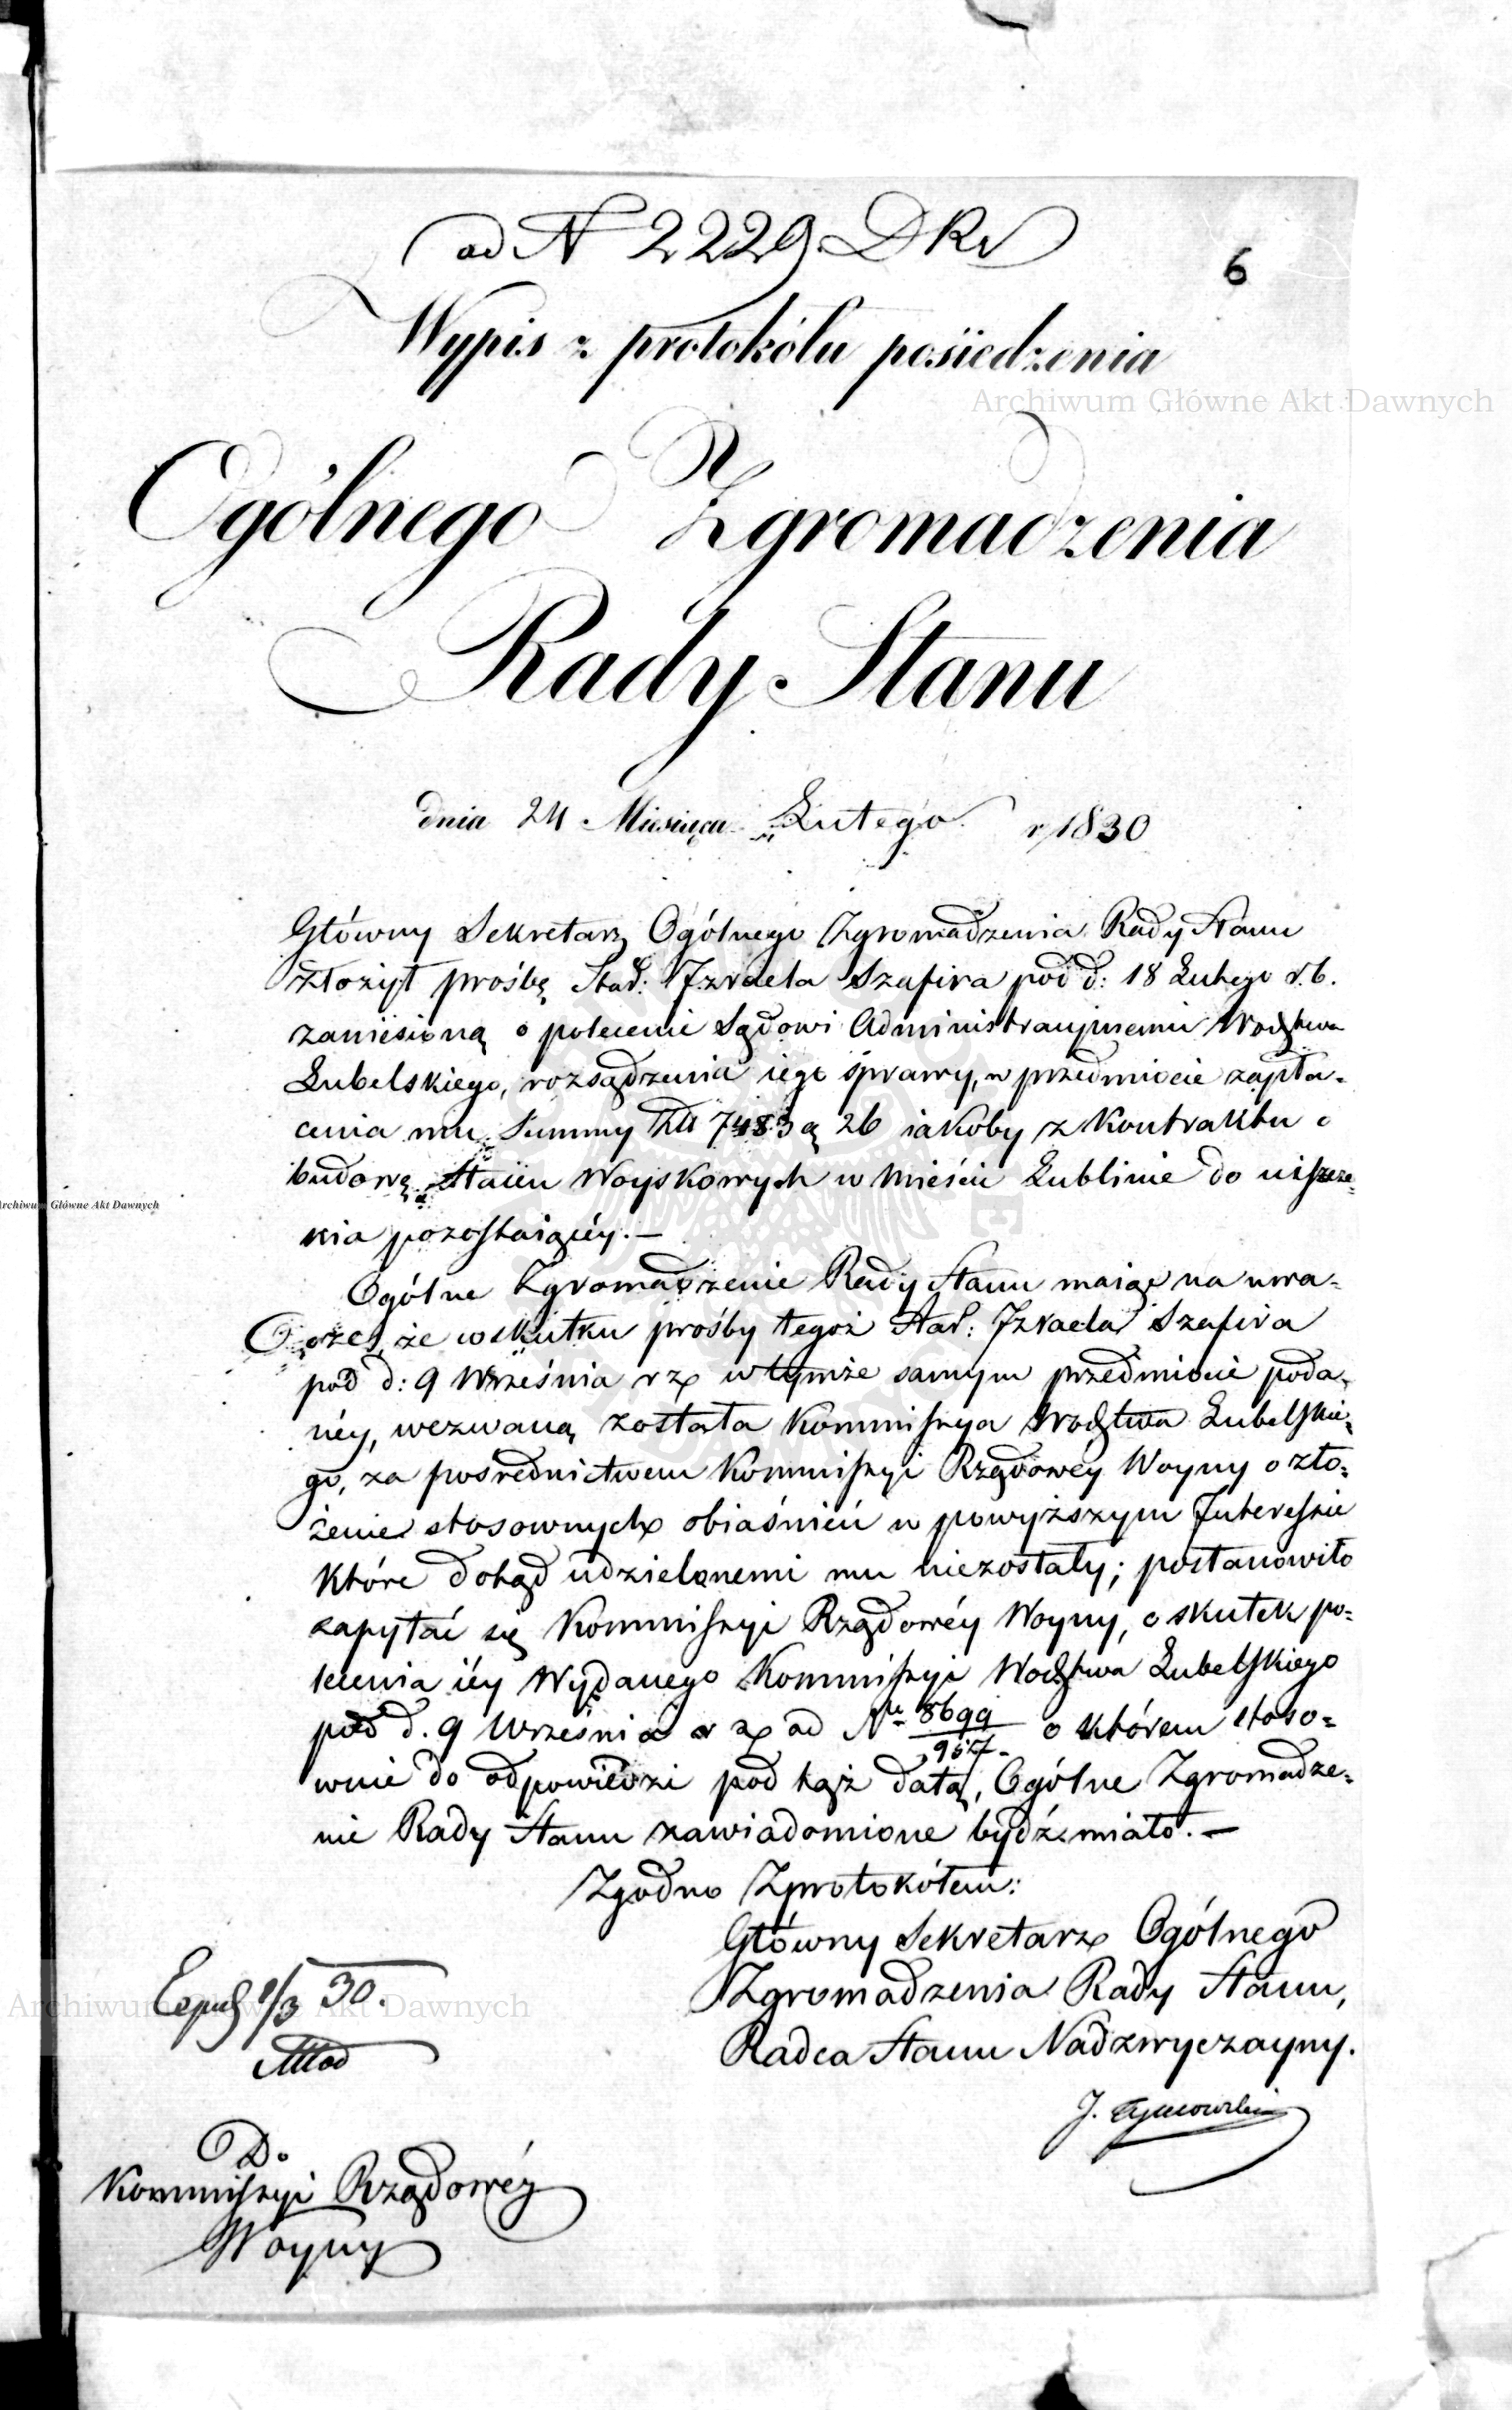 ad N 2229 DKr
6
Wypis z protokólu posiedzenia
Archiwum Główne Akt Dawnych
Ogólnego Zgromadzenia
Rady Stanu
dnia 24 Miesiąca Lutego r 1830
Główny Sekretarz Ogólnego Zgromadzenia Rady Stanu
złożył prośbę Star: Izraela Szafira pod d: 18 Lutego r. b.
zaniesioną o polecenie Sądowi Administracyjnemu Wodztwa
Lubelskiego, rozsądzenia iego sprawy, w przedmiocie zapła=
cenia mu Summy Złł 7483 g 26 iakoby z Kontraktu o
budowę Staien Woyskowych w Mieście Lublinie do uiszcze=
nia pozostaiącéy. —
Ogólne Zgromadzenie Rady Stanu maiąc na uwa=
dze, że w skutku prośby tegoż Star: Izraela Szafira
pod d: 9 Września r z w tymże samym przedmiocie poda=
néy, wezwaną została Kommissya Wodztwa Lubelskie=
go, za pośrednictwem Kommissyi Rządowéy Woyny o zło=
żenie stosownych obiaśnień w powyższym Interessie
które dotąd udzielonemi mu niezostały; postanowiło
zapytać się Kommissyi Rządowéy Woyny, o skutek po=
lecenia iéy Wydanego Kommissyi Wodztwa Lubelskiego
pod d. 9 Września r z ad Nr 8699 o którem stoso=
wnie do odpowiedzi pod tąż datą, Ogólne Zgromadze=
nie Rady Stanu zawiadomione bydź miało. —
Zgodno Zprotokółem:
Główny Sekretarz Ogólnego
Zgromadzenia Rady Stanu,
Radca Stanu Nadzwyczayny.
J. Tymowski
30.
Archiwum Główne Akt Dawnych
Do
Kommissyi Rządowéy
Woyny
Archiwum Główne Akt Dawnych